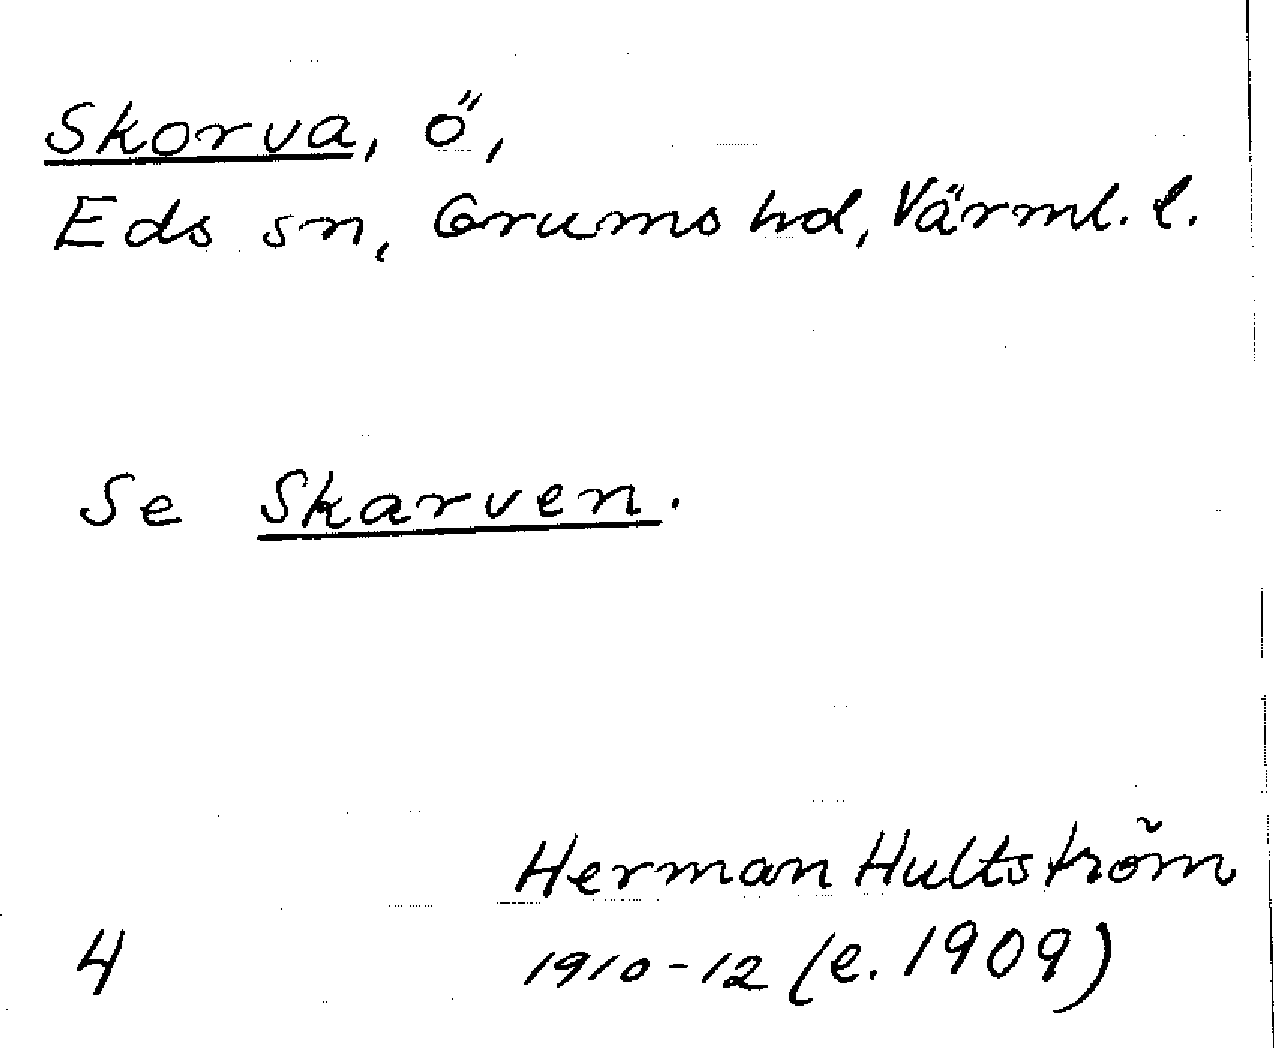 Skorva, ö,
Eds sn, Grums hd, Värml. l.
Se Skarven.
Herman Hultström
4 1910-12 (e. 1909)